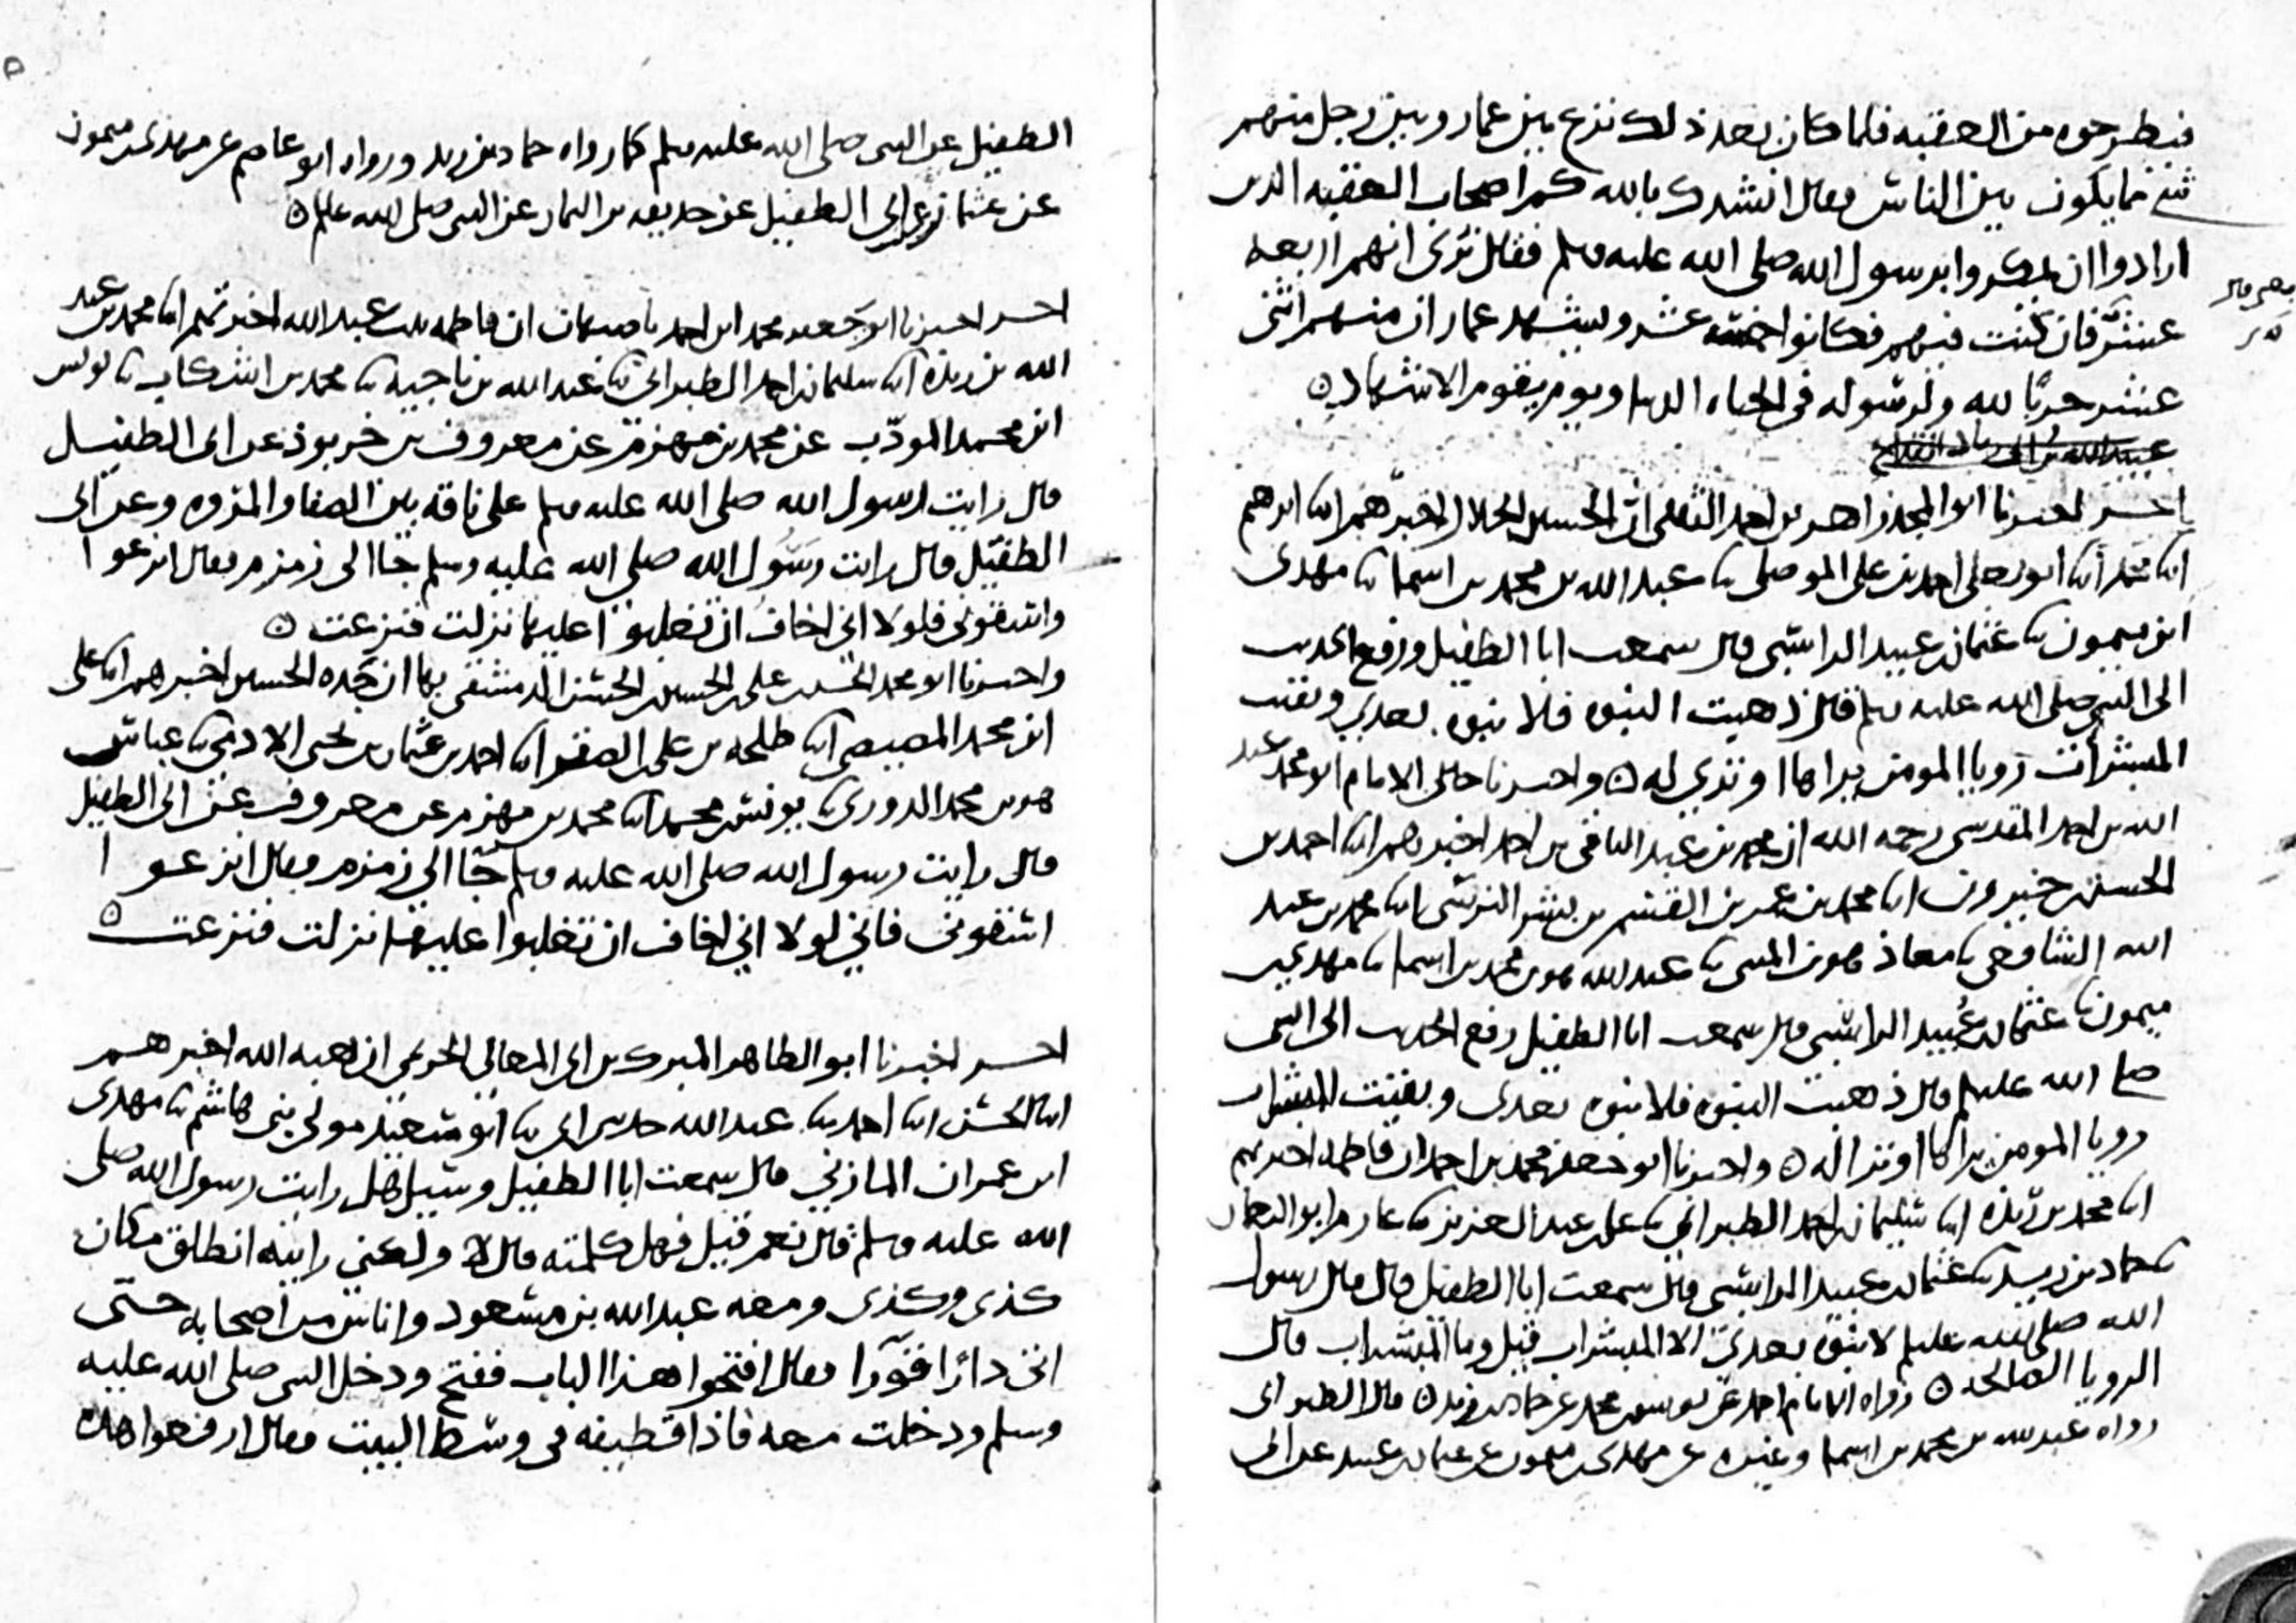 فيطرحوه من العقبه فلما كان بعد ذلك نزع بين عمار وبين رجل منهم
شي مما يكون بين الناس فقال انشدك بالله كم اصحاب العقبه الذين
ارادوا ان يمكروا برسول الله صلى الله عليه وسلم فقال نرى انهم اربعه
عشر فان كنت فيهم فكانوا خمسه عشر ويشهد عمار ان منهم اثنى
عشر حربا لله ولرسوله في الحياه الدنيا ويوم يقوم الاشهاد
عبيد الله بن ابي زياد القداح
اخر اخبرنا ابو المجد زاهر بن احمد الثقفي ان الحسين الخلال اخبرهم ابنا ابرهيم
ابنا محمد ابنا ابو يعلى احمد بن علي الموصلي ثنا عبد الله بن محمد بن اسما ثنا مهدي
ابن ميمون ثنا عثمان بن عبيد الراسبي قال سمعت ابا الطفيل ورفع الحديث
الى النبي صلى الله عليه وسلم قال ذهبت النبوه فلا نبوه بعدي وبقيت
المبشرات رويا المومن يراها او ترى له واخبرنا خالي الامام ابو محمد عبد
الله بن احمد المقدسي رحمه الله ان محمد بن عبد الباقي بن احمد اخبرهم ابنا احمد بن
الحسن بن خيرون ابنا محمد بن عمر بن القسم بن بشر النرسي ابنا محمد بن عبد
الله الشافعي ثنا معاذ هو بن المثنى ثنا عبد الله هو بن محمد بن اسما ثنا مهدي بن
ميمون ثنا عثمان بن عبيد الراسبي قال سمعت ابا الطفيل رفع الحديث الى النبي
صلى الله عليه وسلم قال ذهبت النبوه فلا نبوه بعدي وبقيت المبشرات
رويا المومن يراها او ترا له واخبرنا ابو جعفر محمد بن احمد ان فاطمه اخبرتهم
ابنا محمد بن ريذه ابنا سليمان بن احمد الطبراني ثنا علي بن عبد العزيز ثنا عارم ابو النعمان
ثنا حماد بن زيد ثنا عثمان بن عبيد الراسبي قال سمعت ابا الطفيل قال قال رسول
الله صلى الله عليه وسلم لا نبوه بعدي الا المبشرات قيل وما المبشرات قال
الرويا الصالحه رواه الامام احمد عن يونس بن محمد عن حماد بن زيد قال الطبراني
رواه عبد الله بن محمد بن اسما وغيره عن مهدي بن ميمون عن عثمان بن عبيد عن ابي
الطفيل عن النبي صلى الله عليه وسلم كما رواه حماد بن زيد ورواه ابو عاصم عن مهدي بن ميمون
عن عثمان عن ابي الطفيل عن حذيفه بن اليمان عن النبي صلى الله عليه وسلم
اخر اخبرنا ابو جعفر محمد ابن احمد باصبهان ان فاطمه بنت عبد الله اخبرتهم ابنا محمد بن عبد
الله بن ريذه ابنا سليمان بن احمد الطبراني ثنا عبد الله بن ناجيه ثنا محمد بن اشكاب ثنا يونس
ابن محمد المودب عن محمد بن مهزم عن معروف بن خربوذ عن ابي الطفيل
قال رايت رسول الله صلى الله عليه وسلم على ناقه بين الصفا والمروه وعن ابي
الطفيل قال رايت رسول الله صلى الله عليه وسلم جا الى زمزم فقال انزعوا
واسقوني فلولا اني اخاف ان تغلبوا عليها نزلت فنزعت
واخبرنا ابو محمد الحسن بن علي بن الحسين بن الحسن الدمشقي بها ان جده الحسين اخبرهم ابنا علي
ابن محمد المصيصي ابنا طلحه بن علي بن الصقر ابنا احمد بن عثمان بن يحيى الادمي ثنا عباس
هو بن محمد الدوري ثنا يونس بن محمد ابنا محمد بن مهزم عن معروف عن ابي الطفيل
قال رايت رسول الله صلى الله عليه وسلم جا الى زمزم فقال انزعوا
اسقوني فاني لولا اني اخاف ان تغلبوا عليها نزلت فنزعت
اخر اخبرنا ابو الطاهر المبرك بن ابي المعالي الحريمي ان هبه الله اخبرهم
ابنا الحسن ابنا احمد ثنا عبد الله حدثني ابي ثنا ابو سعيد مولى بني هاشم ثنا مهدي
ابن عمران المازني قال سمعت ابا الطفيل وسيل هل رايت رسول الله صلى
الله عليه وسلم قال نعم قيل فهل كلمته قال لا ولكني رايته انطلق مكان
كذى وكذى ومعه عبد الله بن مسعود واناس من اصحابه حتى
اتى دارا قورا فقال افتحوا هذا الباب ففتح ودخل النبي صلى الله عليه
وسلم ودخلت معه فاذا قطيفه في وسط البيت فقال ارفعوا هذه